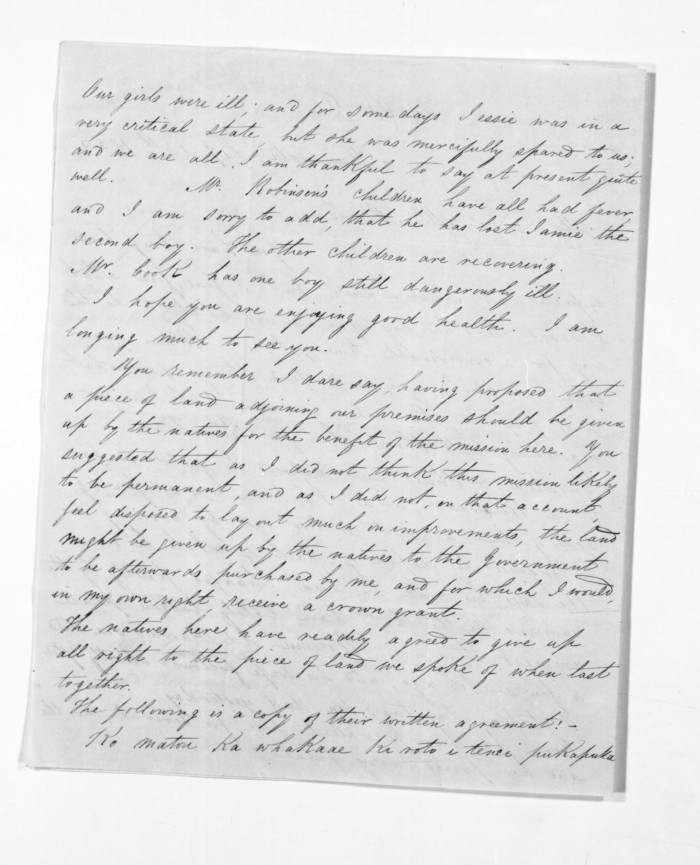 Our girls were ill; and for some days Jessie was in a
very critical state but she was mercifully spared to us;
and we are all, I am thankful to say at present quite
well. Mr. Robinson's children have all had fever,
and I am sorry to add, that he has lost Jamie the
second boy. The other children are recovering.
Mr. Cook has one boy still dangerously ill.
I hope you are enjoying good health. I am
longing much to see you.
You remember I dare say, having proposed that
a piece of land adjoining our premises should be given
up by the natives for the benefit of the mission here. You
suggested that as I did not think this mission likely
to be permanent, and as I did not, on that account,
feel disposed to lay out much on improvements, the land
might be given up by the natives to the Government
to be afterwards purchased by me, and for which I would,
in my own right, receive a crown grant.
The natives here have readily agreed to give up
all right to the piece of land we spoke of when last
together.
The following is a copy of their written agreement:—
Ko matou Ka whakaae Ki roto i tenei pukapuka